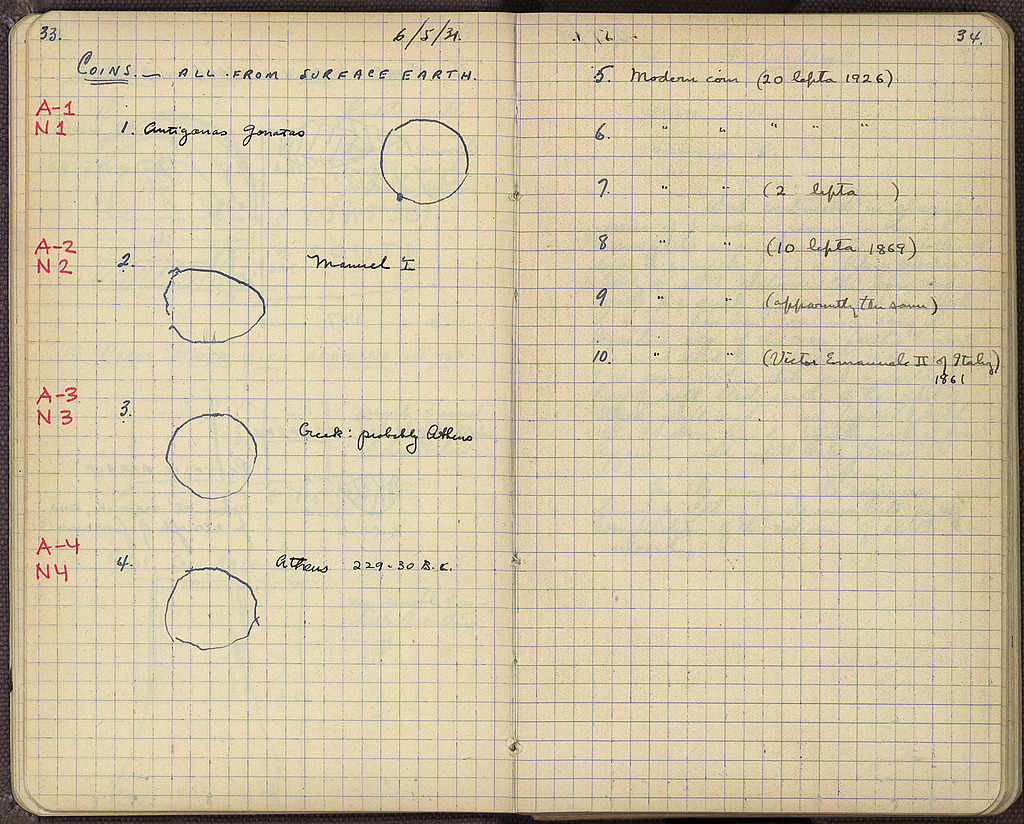 33.
6/5/31.
COINS. — ALL FROM SURFACE EARTH.
A-1
N 1
1. Antigonas Gonatas
A-2
N 2
2. Manuel I
A-3
N 3
3. Greek: probably Athens
A-4
N 4
4. Athens 229-30 B.C.
34.
5. Modern coin (20 lepta 1926)
6. " " " " "
7. " " (2 lepta )
8 " " (10 lepta 1869)
9 " " (apparently the same)
10. " " (Victor Emanuele II of Italy)
1861